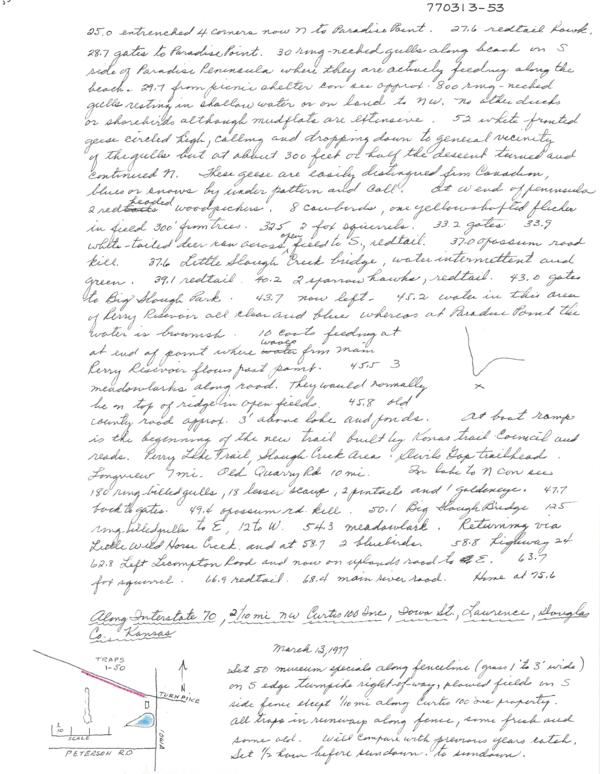 770313-53
25.0 entrenched 4 corners now N to Paradise Point. 27.6 redtail hawk.
28.7 gates to Paradise Point. 30 ring-necked gulls along beach on S
side of Paradise Peninsula where they are actively feeding along the
beach. 29.7 from picnic shelter can see approx. 800 ring-necked
gulls resting in shallow water or on land to NW. No other ducks
or shorebirds although mudflats are extensive. 52 white fronted
geese circled high, calling and dropping down to general vicinity
of the gulls but at about 300 feet or half the descent turned and
continued N. These geese are easily distinguished from Canadian,
blues or snows by under pattern and call. At W end of peninsula
2 red headed woodpeckers. 8 cowbirds, one yellowshafted flicker
in field 300' from trees. 32.5 2 fox squirrels. 33.2 gates 33.9
white-tailed deer ran across open field to S, redtail. 37.0 opossum road
kill. 37.6 Little Slough Creek bridge, water intermittent and
green. 39.1 redtail. 40.2 2 sparrow hawks, redtail. 43.0 gates
to Big Slough Park. 43.7 now left. 45.2 water in this area
of Perry Resevoir all clear and blue whereas at Paradise Point the
water is brownish. 10 coots feeding at
at end of point where water from main
Perry Resevoir flows past point. 45.5 3
meadowlarks along road. They would normally
be on top of ridge in open fields. 45.8 old
county road approx. 3' above lake and ponds. At boat ramp
is the beginning of the new trail built by Kansas trail Council and
reads. Perry Lake Trail, Slough Creek Area. Devils Gap trailhead.
Longview 7 mi. Old Quarry Rd 10 mi. In lake to N can see
180 ring billed gulls, 18 lesser scaup, 2 pintails and 1 goldeneye. 47.7
back to gates. 49.6 opossum rd kill. 50.1 Big Slough Bridge 125
ring billed gulls to E, 12 to W. 54.3 meadowlark. Returning via
Little Wild Horse Creek, and at 58.7 2 bluebirds. 58.8 highway 24
62.8 Left Lecompton Road and now on uplands road to E. 63.7
fox squirrel. 66.9 redtail. 68.4 main river road. Home at 75.6
Along Interstate 70, 2/10 mi NW Curtis 100 Inc, Iowa St., Lawrence, Douglas
Co., Kansas
March 13, 1977
Set 50 museum specials along fenceline (grass 1' to 3' wide)
on S edge turnpike right-of-way, plowed fields on S
side fence except 1/10 mi along Curtis 100 one property.
All traps in runway along fence, some fresh and
some old. Will compare with previous years catch.
Set 1/2 hour before sundown to sundown.
TRAPS
1-50
N
TURNPIKE
SCALE
IOWA
PETERSON RD
X